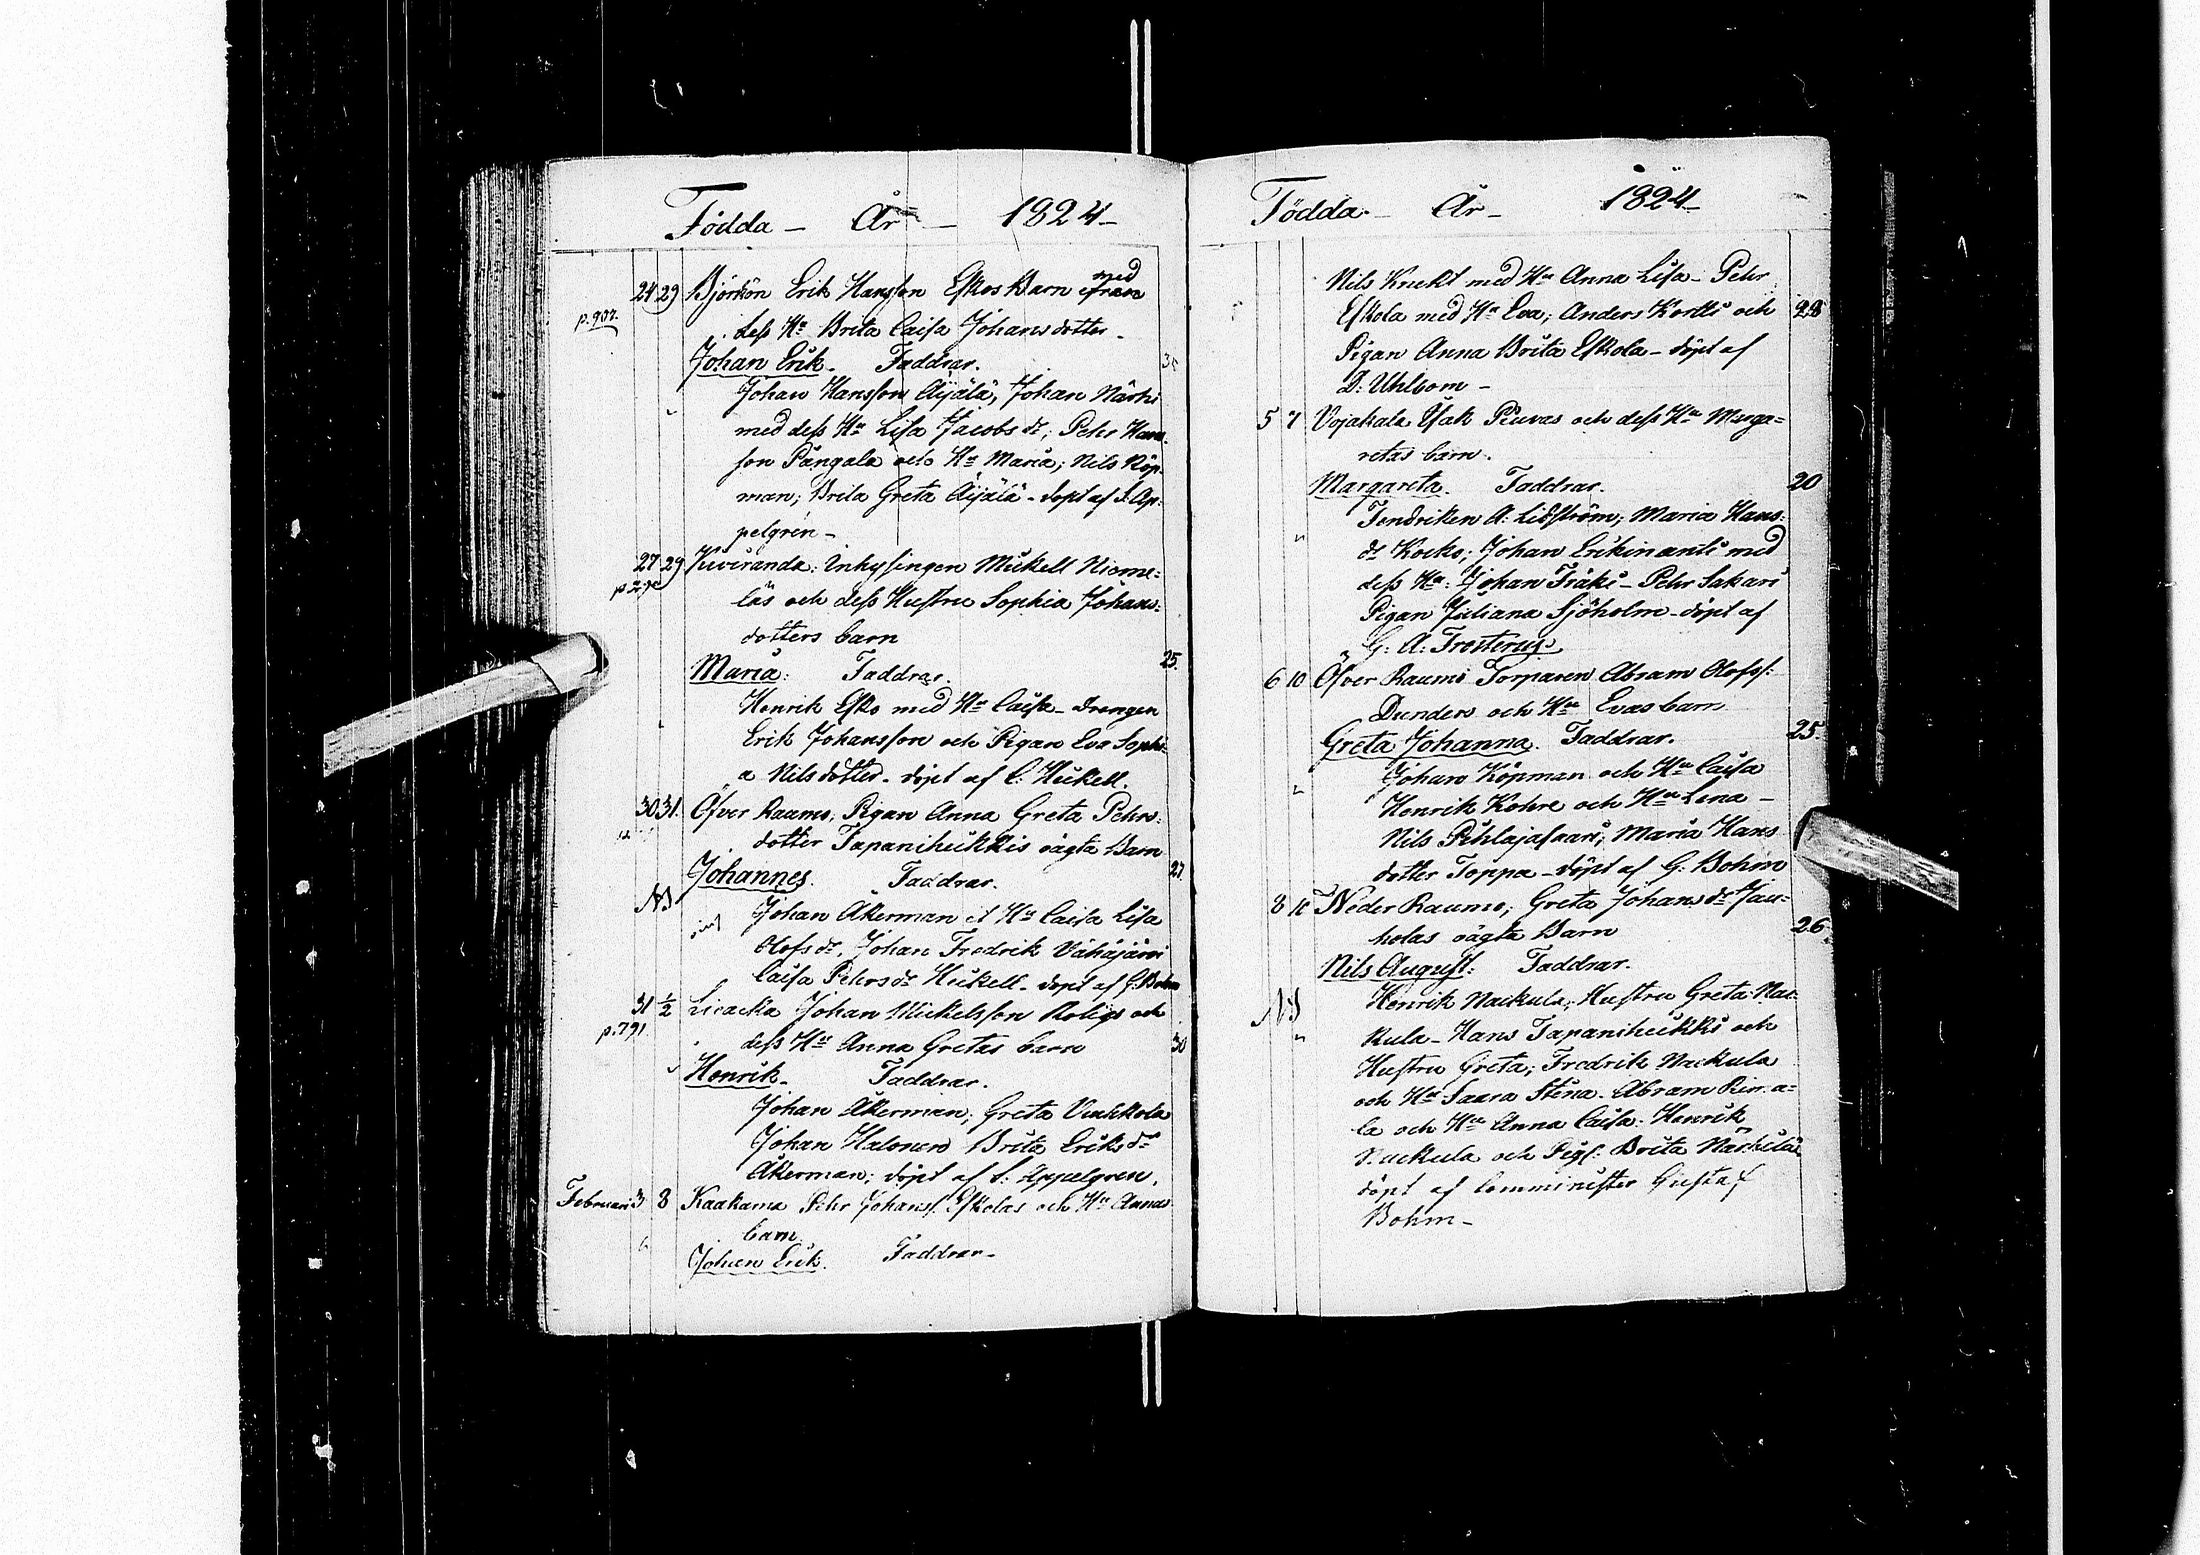 Födda - År - 1824 -
24 29 Björkön Erik Hansson Eskos Barn med
p. 907.
dess Hu Brita Caisa Johansdotter -
Johan Erik. Faddrar.
Johan Hansson Äijälä, Johan Närhi
med dess Hu Lisa Jacobs dr, Pehr Hans-
son Pängala och Hu Maria; Nils Köp-
man; Brita Greta Äijälä - döpt af J. Ap-
pelgrén -
27 29 Kiviranda: Inhysingen Mickell Nieme-
läs och dess Hustru Sophia Johans-
dotters barn
Maria: Faddrar. 25.
Henrik Esko med Hu Caisa - Drengen
Erik Johansson och Pigan Eva Sophi-
a Nilsdotter - döpt af C. Heikell.
30 31. Öfver Raumo, Pigan Anna Greta Pehrs-
dotter Tapaniheikkis oägta Barn
Johannes. Faddrar. 27.
Johan Åkerman et Hu Caisa Lisa
Olofs dr, Johan Fredrik Vähäjärvi
Caisa Pehrs dr Heikell - döpt af G. Bohm
31 1/2 Liedakka Johan Mickelsson Roligs och
p. 791.
dess Hu Anna Gretas barn 30
Henrik. Faddrar.
Johan Åkerman; Greta Vuokkola
Johan Halonen Brita Eriks dr
Åkerman; döpt af J. Appelgren.
Februari 3 8 Kaakama Pehr Johanss. Eskolas och Hu Annas
barn
Johan Erik. Faddrar -
Födda - År - 1824 -
Nils Knekt med Hu Anna Lisa - Pehr
Eskola med Hu Eva; Anders Kortti och 28
Pigan Anna Brita Eskola - döpt af
D: Uhlbom -
5 7 Vojakala Isak Piuvas och dess Hu Marga-
retas barn.
Margareta. Faddrar. 20
Fendriken A: Lidström; Maria Hans-
dr Kocko; Johan Erkinantti med
dess Hu: Johan Träki - Pehr Sakari
Pigan Juliana Sjöholm - döpt af
G: A: Frosterus.
6 10 Öfver Raumo Torparen Abram Olofss:
Dunders och Hu Evas barn
Greta Johanna. Faddrar. 25.
Johan Köpman och Hu Caisa
Henrik Kohre och Hu Lena -
Nils Pihlajasaari; Maria Hans
dotter Toppa - döpt af G: Bohm
8 10 Neder Raumo; Greta Johans dr Jau-
holas oägta Barn 26.
Nils August: Faddrar.
Henrik Nackula; Hustru Greta Nac-
kula - Hans Tapaniheikki och
Hustru Greta; Fredrik Nackula
och Hu Saara Stina. Abram
la och Hu Anna Caisa. Henrik
Nackula och Pig: Brita
döpt af Comminister Gustaf
Bohm -